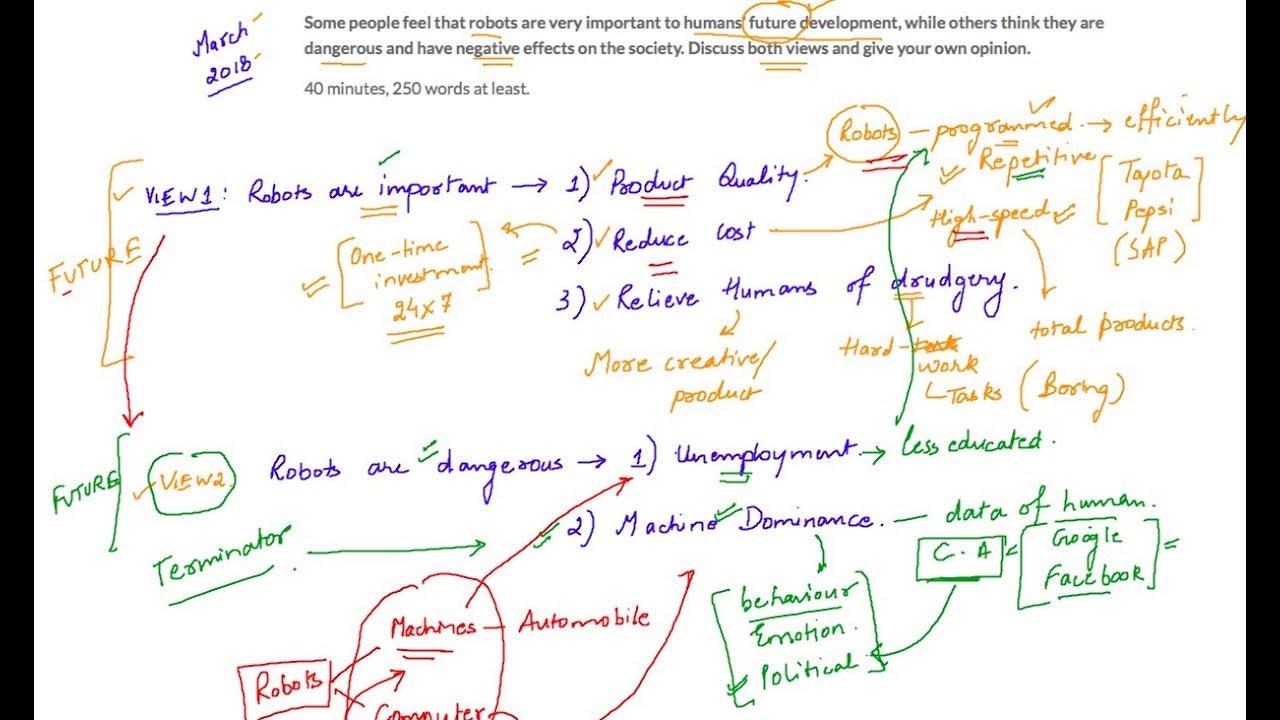 Some people feel that robots are very important to humans future development, while others think they are
dangerous and have negative effects on the society. Discuss both views and give your own opinion.
40 minutes, 250 words at least.
March
2018
Robots — programmed. → efficiently
Repetitive
[Toyota
Pepsi]
(SAP)
High-speed
total products.
FUTURE
VIEW1: Robots are important → 1) Product Quality.
2) Reduce cost
[One-time
investment.
24x7]
3) Relieve Humans of drudgery.
More creative/
product
Hard-
work
Tasks (Boring)
FUTURE
VIEW2. Robots are dangerous → 1) Unemployment. → less educated.
2) Machine Dominance. — data of human.
Terminator
C.A = [Google
Facebook] =
[behaviour
Emotion.
Political]
Machines — Automobile
Robots
Computer